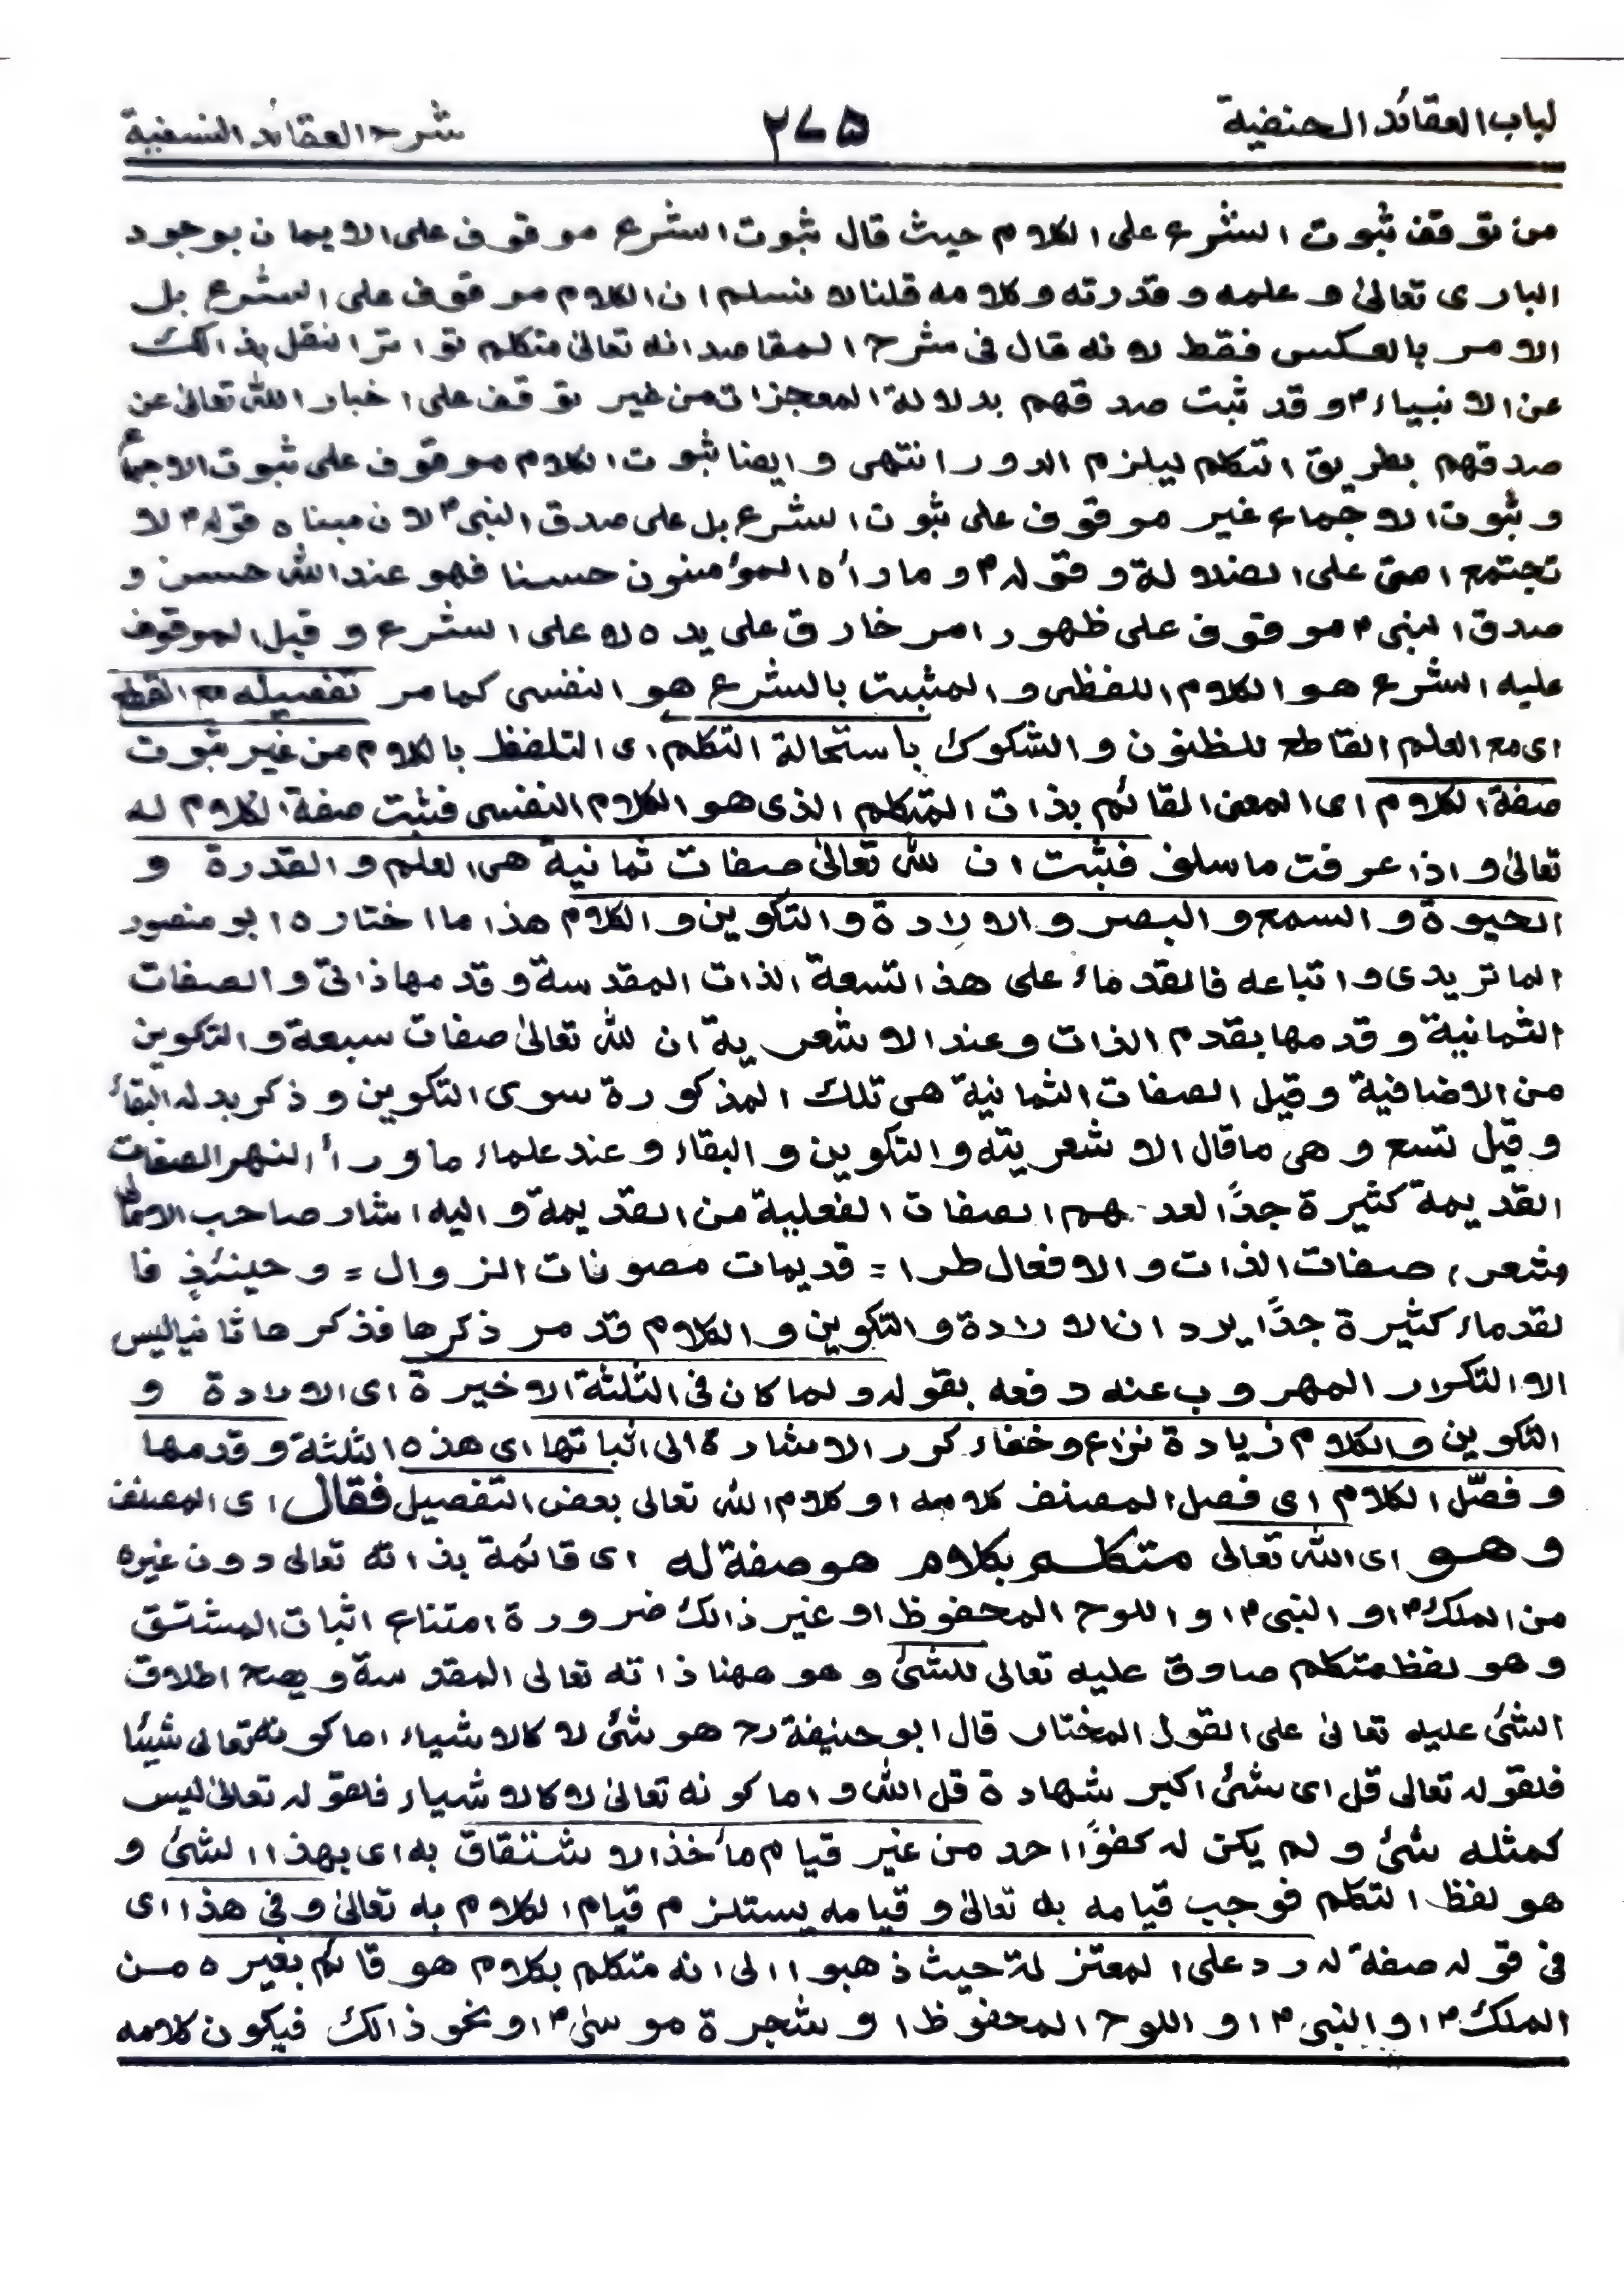 لباب العقائد الحنفية ٢٧٥ شرح العقائد النسفية
من توقف ثبوت الشرع على الكلام حيث قال ثبوت الشرع موقوف على الايمان بوجود
البارى تعالىٰ و علمه و قدرته و كلامه قلنا لا نسلم ان الكلام موقوف على الشرع بل
الامر بالعكس فقط لانه قال فى شرح المقاصد انه تعالىٰ متكلم تواترا نقل بذالك
عن الانبياءؑ و قد ثبت صدقهم بدلالة المعجزات من غير توقف على اخبار اللّٰه تعالىٰ عن
صدقهم بطريق التكلم ليلزم الدور انتهى و ايضا ثبوت الكلام موقوف على ثبوت الاجماع
و ثبوت الاجماع غير موقوف على ثبوت الشرع بل على صدق النبىؐ لان مبناه قولهؐ لا
تجتمع امتى على الضلالة و قولهؐ و ما راٰه المؤمنون حسنا فهو عند اللّٰه حسن و
صدق النبىؐ موقوف على ظهور امر خارق على يده لا على الشرع و قيل الموقوف
عليه الشرع هو الكلام اللفظى و المثبت بالشرع هو النفسى كما مر تفصيله مع القطع
اى مع العلم القاطع للظنون و الشكوك باستحالة التكلم اى التلفظ بالكلام من غير ثبوت
صفة الكلام اى المعنى القائم بذات المتكلم الذى هو الكلام النفسى فثبت صفة الكلام له
تعالىٰ و اذا عرفت ما سلف فثبت ان للّٰه تعالىٰ صفات ثمانية هى العلم و القدرة و
الحيوة و السمع و البصر و الارادة و التكوين و الكلام هذا ما اختاره ابو منصور
الماتريدى و اتباعه فالقدماء على هذا التسعة الذات المقدسة و قدمها ذاتى و الصفات
الثمانية و قدمها بقدم الذات و عند الاشعرية ان للّٰه تعالىٰ صفات سبعة و التكوين
من الاضافية و قيل الصفات الثمانية هى تلك المذكورة سوى التكوين و ذكر بدله البقاء
و قيل تسع و هى ما قال الاشعريته و التكوين و البقاء و عند علماء ماوراء النهر الصفات
القديمة كثيرة جدًا لعدهم الصفات الفعلية من القديمة و اليه اشار صاحب الامالى
شعر، صفات الذات و الافعال طرا = قديمات مصونات الزوال = و حينئذٍ فا
لقدماء كثيرة جدًا يرد ان الارادة و التكوين و الكلام قد مر ذكرها فذكرها ثانيا ليس
الا التكرار المهروب عنه دفعه بقوله و لما كان فى الثلثة الاخيرة اى الارادة و
التكوين و الكلام زيادة نزاع و خفاء كرر الاشارة الى اثباتها اى هذه الثلثة و قدمها
و فصّل الكلام اى فصل المصنف كلامه او كلام اللّٰه تعالى بعض التفصيل فقال اى المصنف
و هو اى اللّٰه تعالى متكلم بكلام هو صفة له اى قائمة بذاته تعالى دون غيره
من الملكؑ او النبىؐ او اللوح المحفوظ او غير ذالك ضرورة امتناع اثبات المشتق
و هو لفظ متكلم صادق عليه تعالى للشئ و هو ههنا ذاته تعالى المقدسة و يصح اطلاق
الشئ عليه تعالىٰ على القول المختار قال ابو حنيفةؒ هو شئ لا كالاشياء اما كونه تعالى شيئا
فلقوله تعالى قل اى شئ اكبر شهادة قل اللّٰه و اما كونه تعالىٰ لا كالاشياء فلقوله تعالىٰ ليس
كمثله شئ و لم يكن له كفوًا احد من غير قيام مأخذ الاشتقاق به اى بهذا الشئ و
هو لفظ التكلم فوجب قيامه به تعالىٰ و قيامه يستلزم قيام الكلام به تعالىٰ و فى هذا اى
فى قوله صفة له رد على المعتزلة حيث ذهبوا الى انه متكلم بكلام هو قائم بغيره من
الملكؑ او النبىؐ او اللوح المحفوظ او شجرة موسىٰؑ او نحو ذالك فيكون كلامه